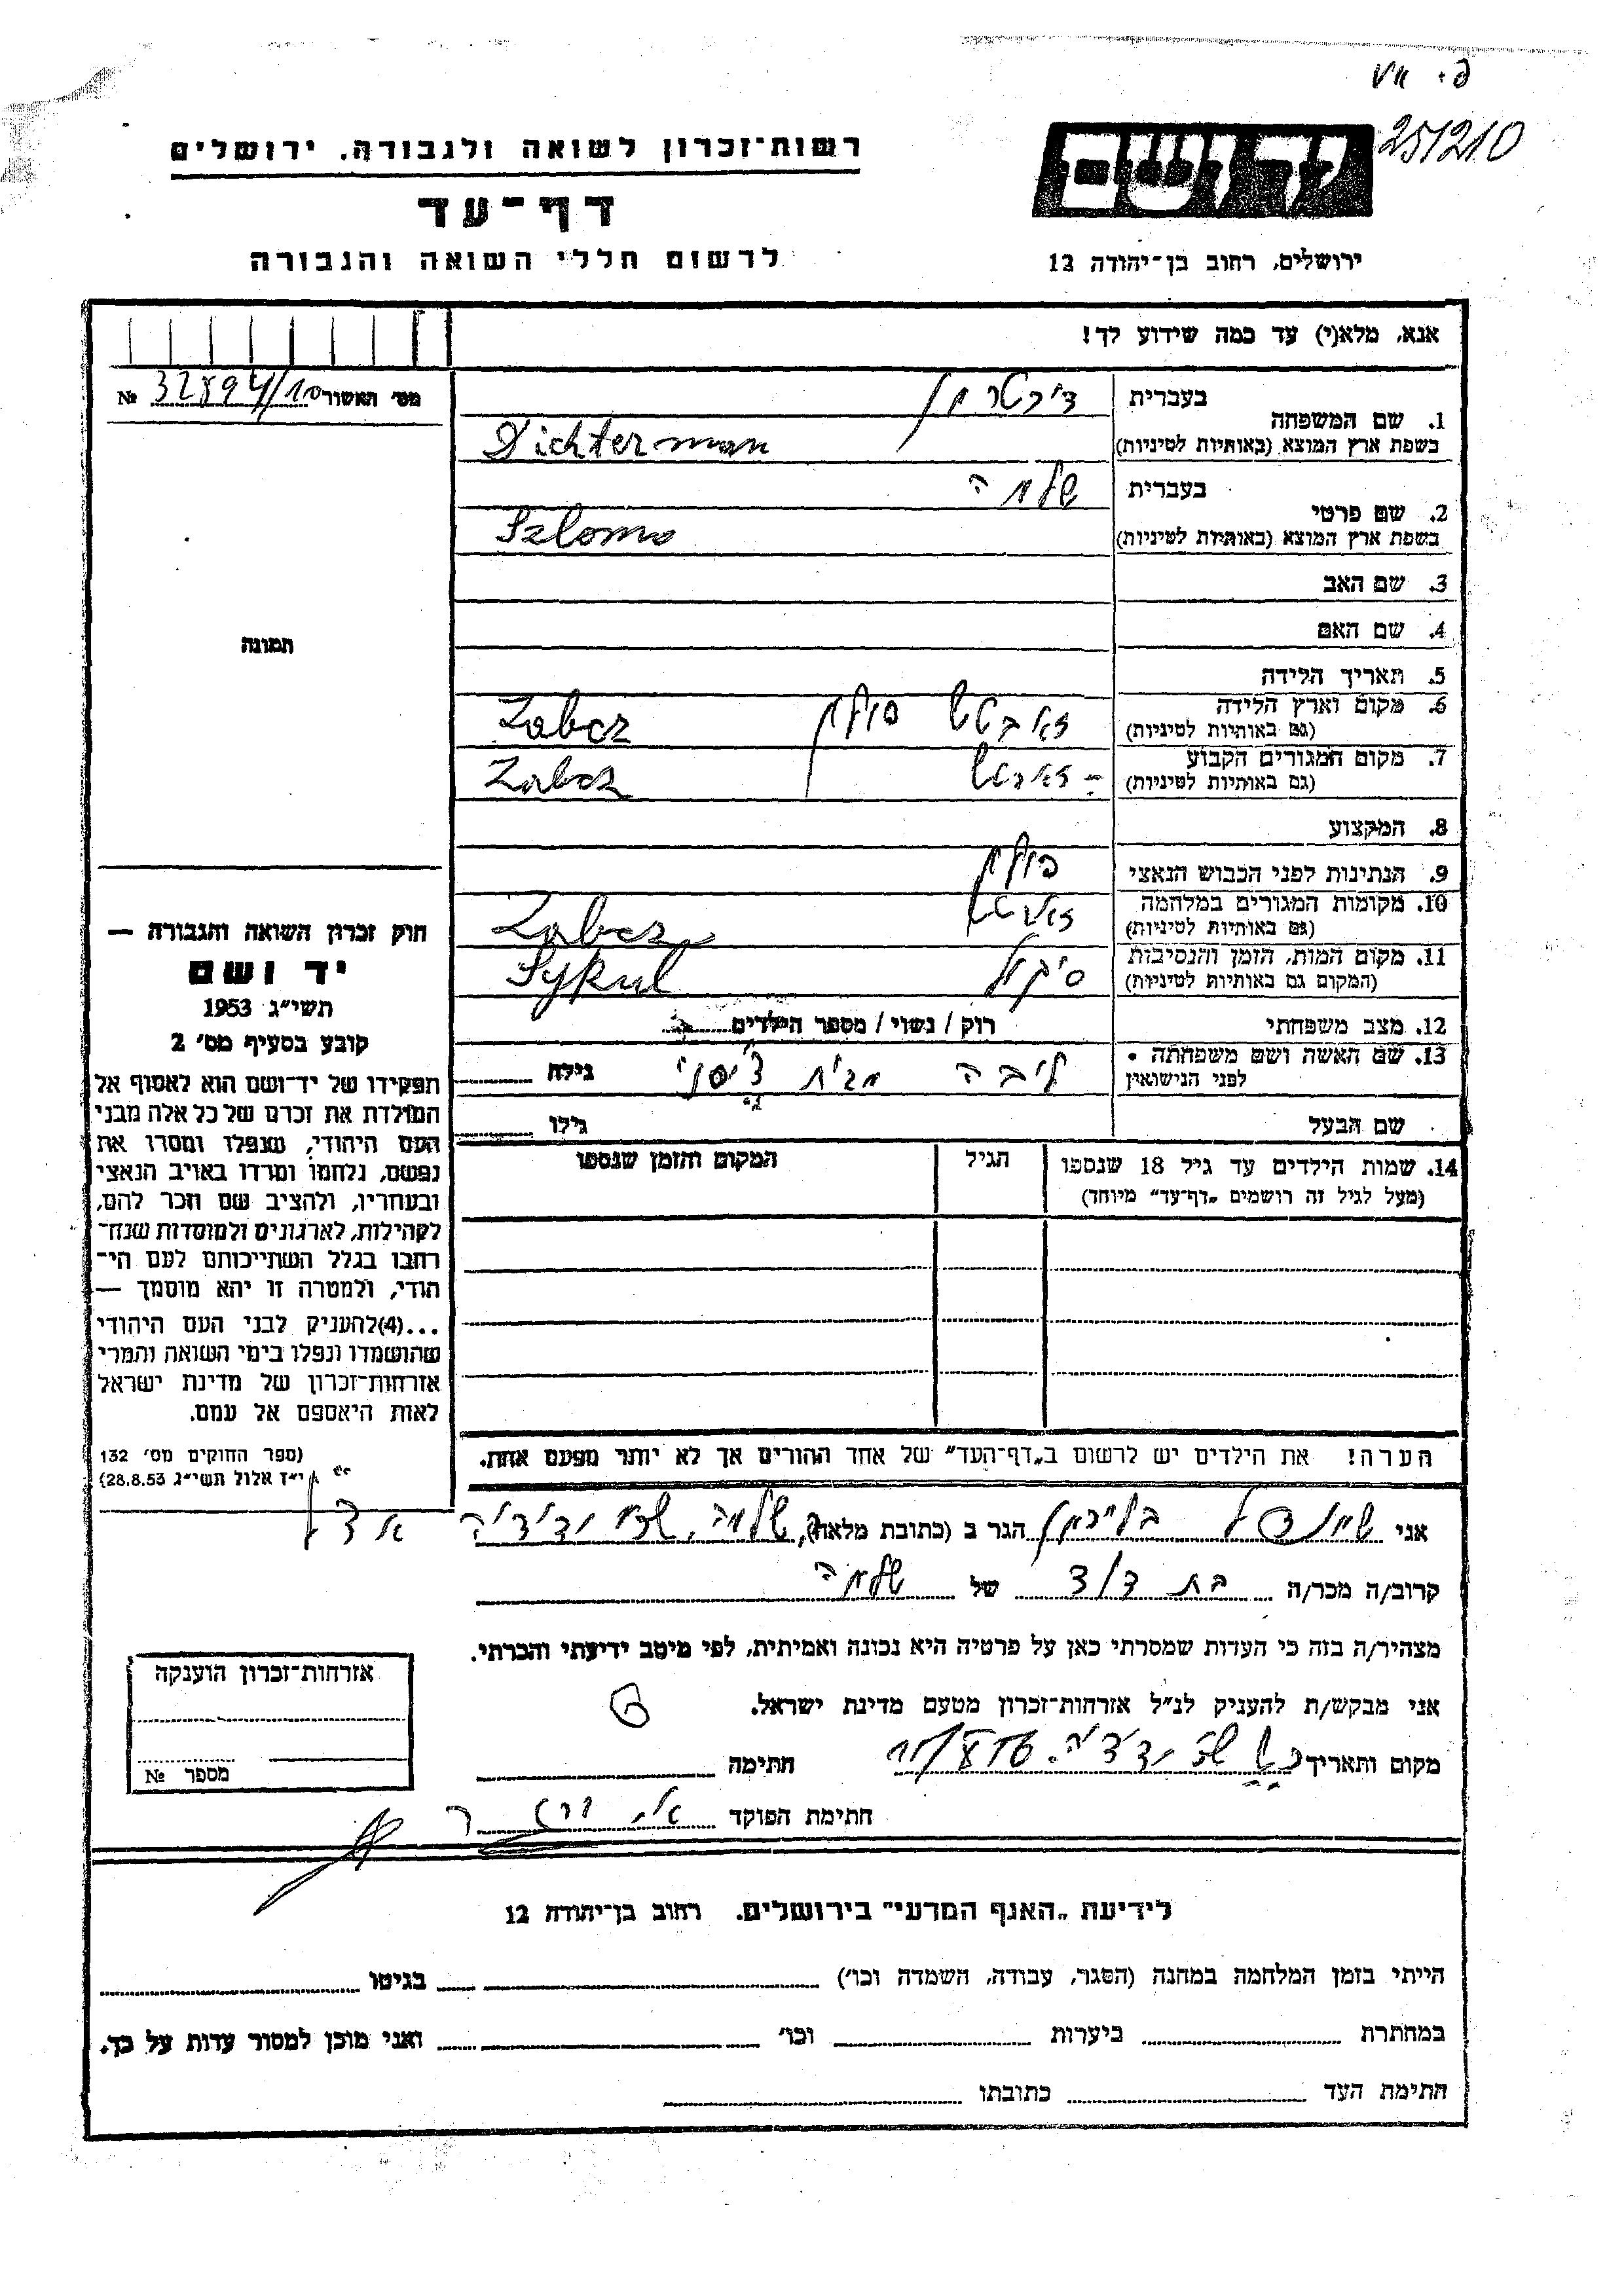 251210
רשות־זכרון לשואה ולגבורה, ירושלים
יד ושם
דף־עד
לרשום חללי השואה והגבורה
ירושלים, רחוב בן־יהודה 12
אנא, מלא(י) עד כמה שידוע לך!
מס׳ האשור 32894/10 №
1. שם המשפחה
בעברית דיכטרמן
בשפת ארץ המוצא (באותיות לטיניות) Dichterman
2. שם פרטי
בעברית שלמה
בשפת ארץ המוצא (באותיות לטיניות) Szlomo
3. שם האב
4. שם האם
תמונה
5. תאריך הלידה
6. מקום וארץ הלידה
(גם באותיות לטיניות) פולין Zabcz
7. מקום המגורים הקבוע
(גם באותיות לטיניות) Zabcz
8. המקצוע
9. הנתינות לפני הכבוש הנאצי פולין
10. מקומות המגורים במלחמה
(גם באותיות לטיניות) Zabcz
11. מקום המות, הזמן והנסיבות
(המקום גם באותיות לטיניות) סיקול Sykul
12. מצב משפחתי רוק / נשוי / מספר הילדים
13. שם האשה ושם משפחתה
לפני הנישואין ליבה מבית גילה
שם הבעל גילו
14. שמות הילדים עד גיל 18 שנספו הגיל המקום והזמן שנספו
(מעל לגיל זה רושמים „דף־עד” מיוחד)
הערה! את הילדים יש לרשום ב„דף־העד” של אחד ההורים אך לא יותר מפעם אחת.
חוק זכרון השואה והגבורה —
יד ושם
תשי״ג 1953
קובע בסעיף מס׳ 2
תפקידו של יד־ושם הוא לאסוף אל
המולדת את זכרם של כל אלה מבני
העם היהודי, שנפלו ומסרו את
נפשם, נלחמו ומרדו באויב הנאצי
ובעוזריו, ולהציב שם וזכר להם,
לקהילות, לארגונים ולמוסדות שנח־
רבו בגלל השתייכותם לעם הי־
הודי, ולמטרה זו יהא מוסמך —
...(4) להעניק לבני העם היהודי
שהושמדו ונפלו בימי השואה והמרי
אזרחות־זכרון של מדינת ישראל
לאות היאספם אל עמם.
(ספר החוקים מס׳ 132
י״ז אלול תשי״ג 28.8.53)
אני הגר ב (כתובת מלאה)
קרוב/ה מכר/ה בת דוד של שלמה
מצהיר/ה בזה כי העדות שמסרתי כאן על פרטיה היא נכונה ואמיתית, לפי מיטב ידיעתי והכרתי.
אני מבקש/ת להעניק לנ״ל אזרחות־זכרון מטעם מדינת ישראל.
מקום ותאריך חתימה
חתימת הפוקד
אזרחות־זכרון הוענקה
מספר №
לידיעת „האגף המדעי” בירושלים, רחוב בן־יהודה 12
הייתי בזמן המלחמה במחנה (הסגר, עבודה, השמדה וכו׳) בגיטו
במחתרת ביערות וכו׳ ואני מוכן למסור עדות על כך.
חתימת העד כתובתו